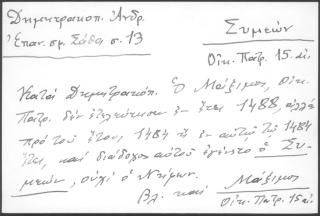 Δημητρακοπ. Ἀνδρ.
Ἐπαν. σφ. Σάθα σ. 13
Συμεών
Οἰκ. Πατρ. 15. αἰ.
Κατὰ Δημητρακόπ. Ὁ Μάξιμος Οἰκ.
Πατρ. δὲν ἐτελεύτησεν ἐν ἔτει 1488, ἀλλὰ
πρὸ τοῦ ἔτους 1484 ἢ ἐν αὐτῷ τῷ 1484
ἔτει, καὶ διάδοχος αὐτοῦ ἐγένετο ὁ Συ-
μεών, οὐχὶ ὁ Νήφων.
Βλ. καὶ Μάξιμος
Οἰκ. Πατρ. 15 αἰ.